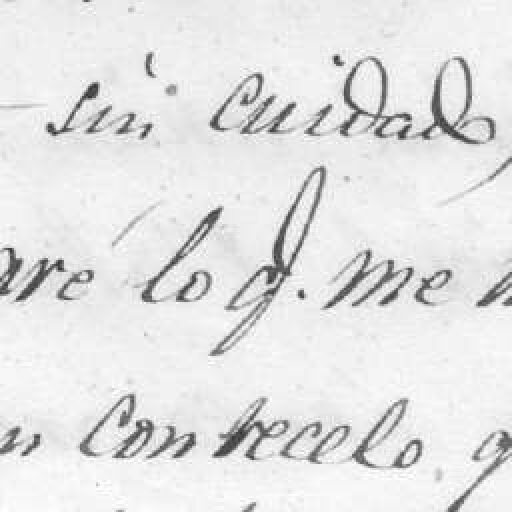 sin cuidado,
aré lo q. me
n con recelo q